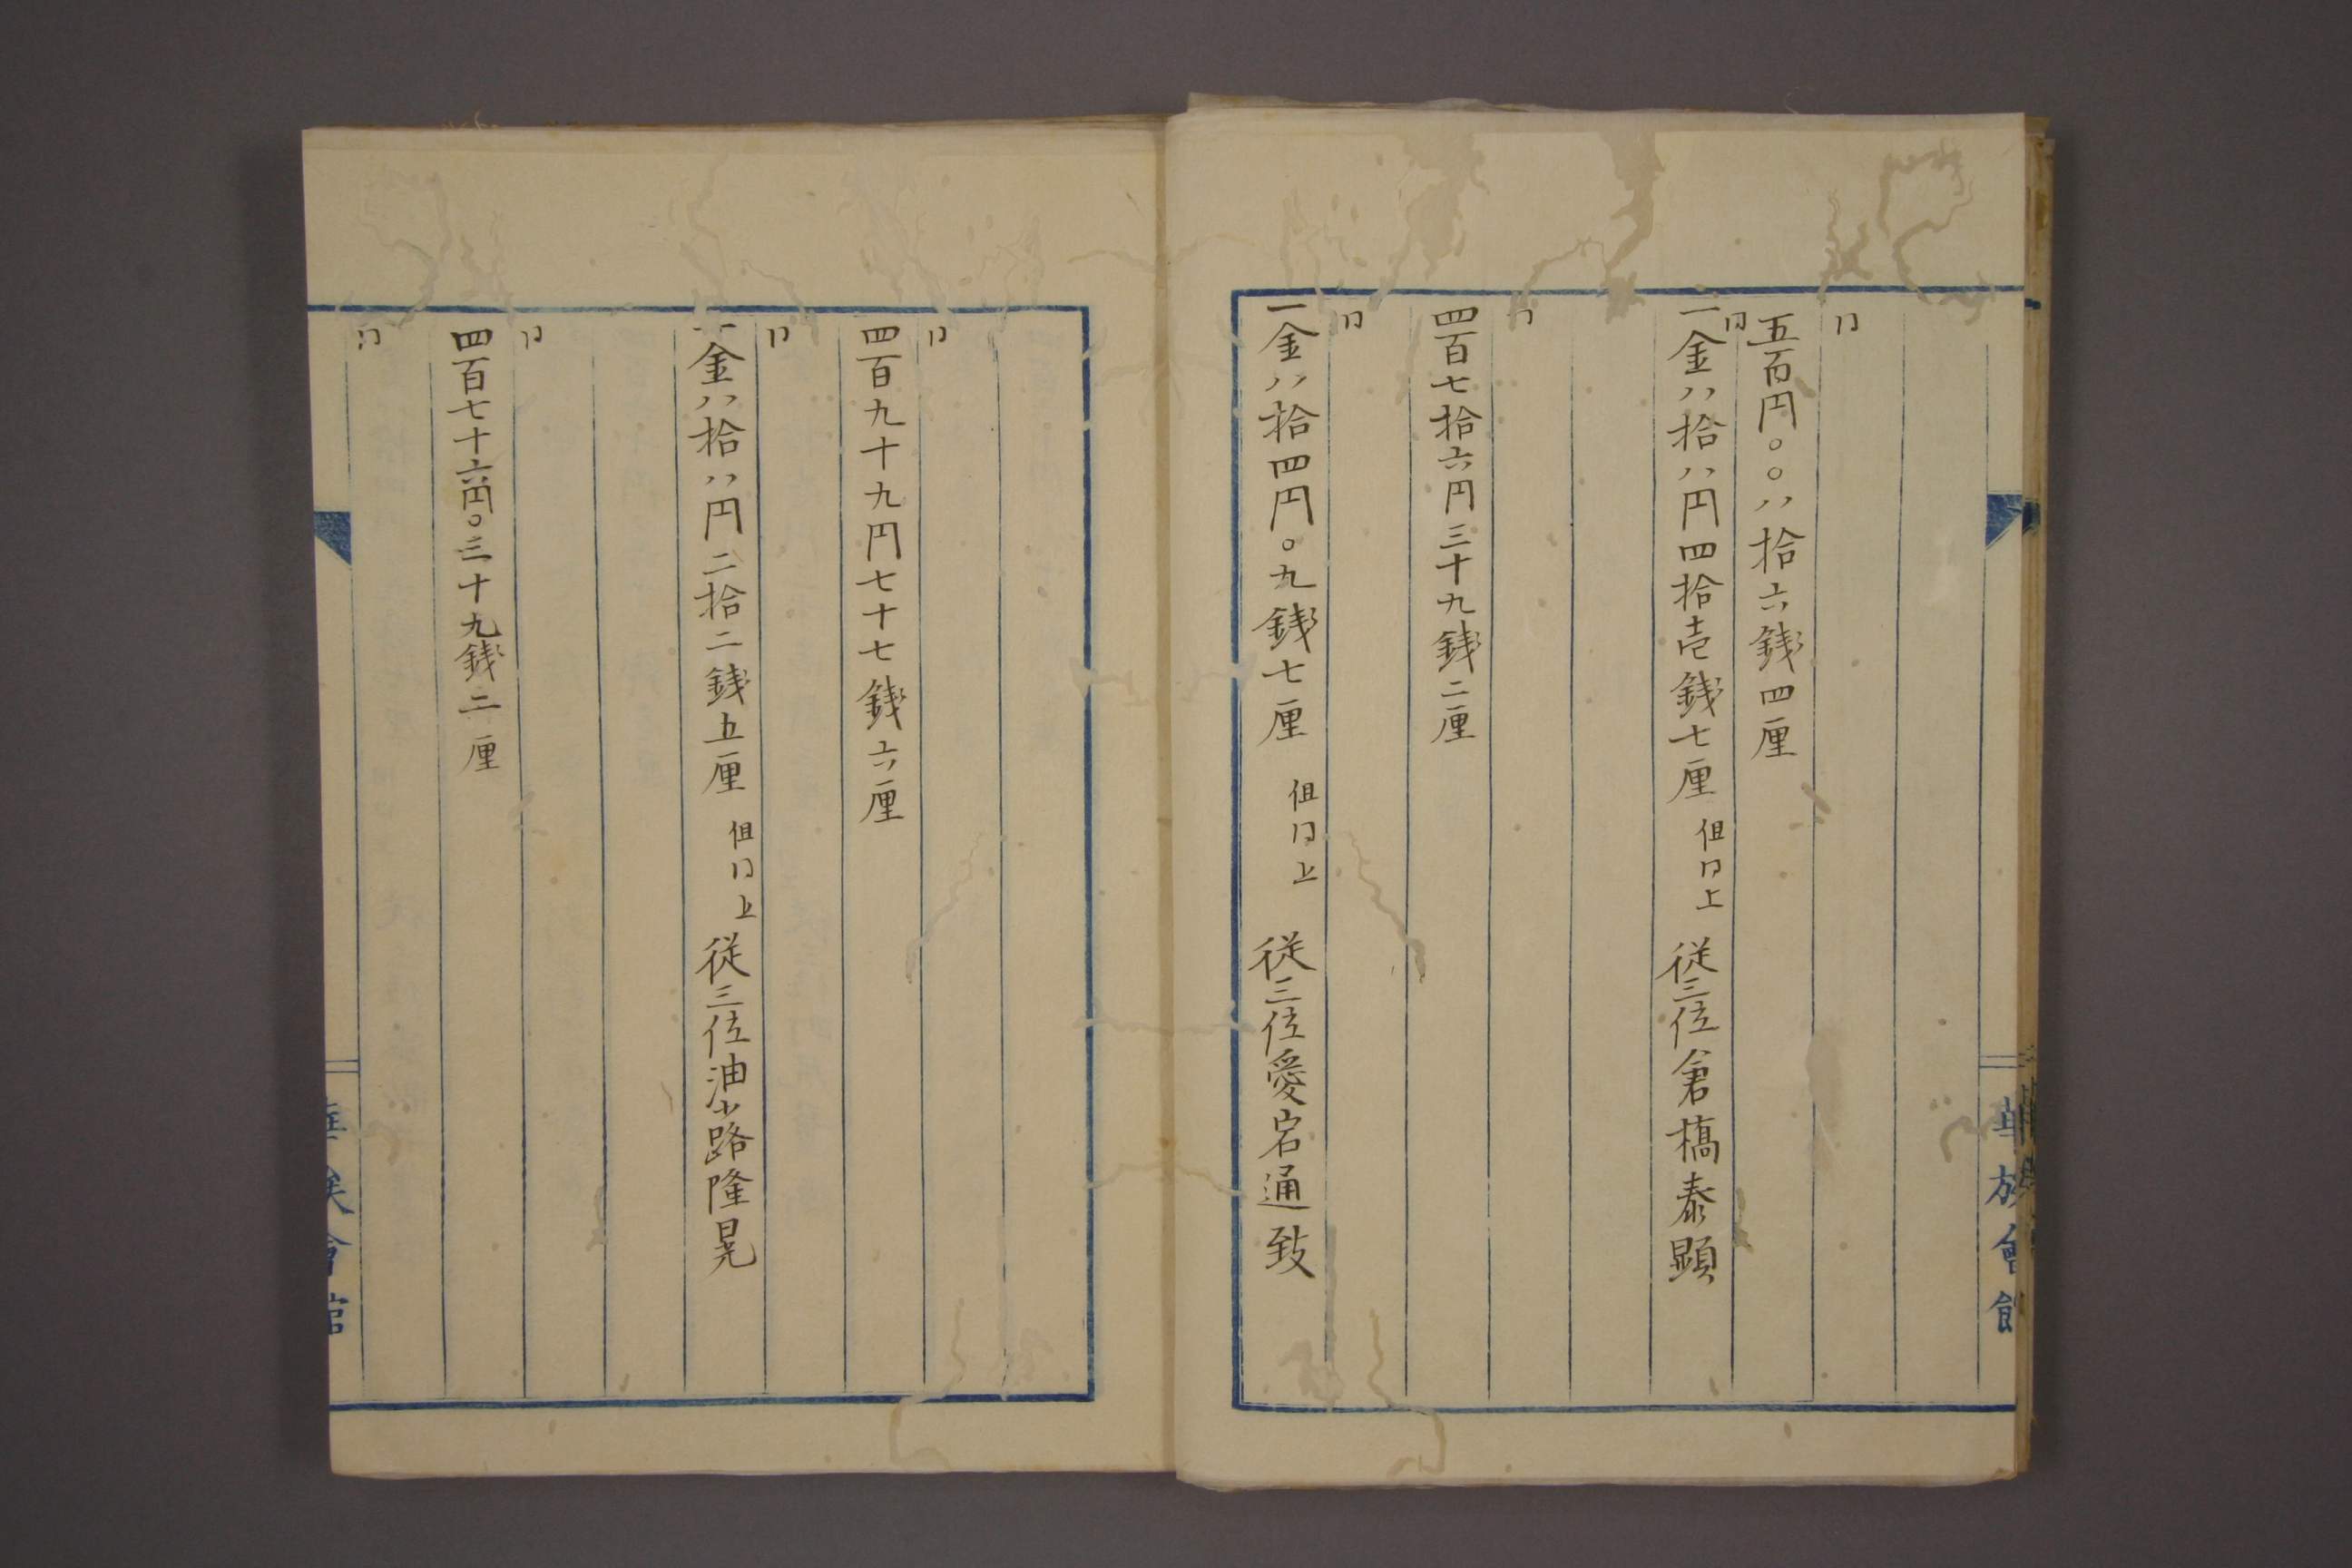 華族會館
仝
五百円〇〇八拾六銭四厘
仝
一金八拾八円四拾壱銭七厘 但仝上 従三位倉橋泰顕
仝
四百七拾六円三十九銭二厘
仝
一金八拾四円〇九銭七厘 但仝上 従三位愛宕通致
仝
四百九十九円七十七銭六厘
仝
一金八拾八円二拾二銭五厘 但仝上 従三位油小路隆晃
仝
四百七十六円〇三十九銭二厘
仝
華族會館